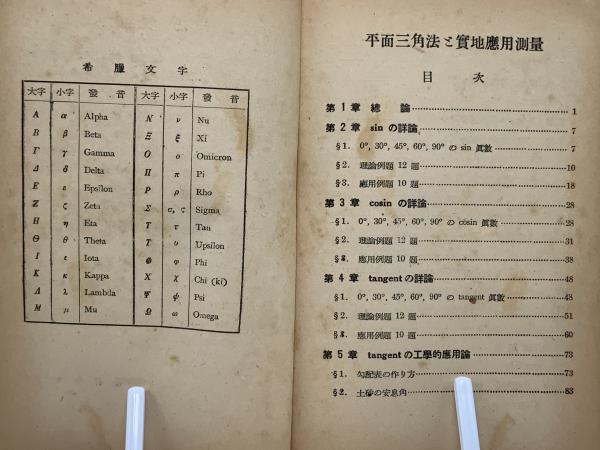 希臘文字
大字 小字 發音 大字 小字 發音
Α α Alpha Ν ν Nu
Β β Beta Ξ ξ Xi
Γ γ Gamma Ο ο Omicron
Δ δ Delta Π π Pi
Ε ε Epsilon Ρ ρ Rho
Ζ ζ Zeta Σ σ, ς Sigma
Η η Eta Τ τ Tau
Θ θ Theta Υ υ Upsilon
Ι ι Iota Φ φ Phi
Κ κ Kappa Χ χ Chi (ki)
Λ λ Lambda Ψ ψ Psi
Μ μ Mu Ω ω Omega
平面三角法と實地應用測量
目次
第1章 總論 1
第2章 sin の詳論 7
§1. 0°, 30°, 45°, 60°, 90° の sin 眞數 7
§2. 理論例題 12 題 10
§3. 應用例題 10 題 18
第3章 cosin の詳論 28
§1. 0°, 30°, 45°, 60°, 90° の cosin 眞數 28
§2. 理論例題 12 題 31
§3. 應用例題 10 題 38
第4章 tangent の詳論 48
§1. 0°, 30°, 45°, 60°, 90° の tangent 眞數 48
§2. 理論例題 12 題 51
§3. 應用例題 10 題 60
第5章 tangent の工學的應用論 73
§1. 勾配表の作り方 73
§2. 土砂の安息角 83